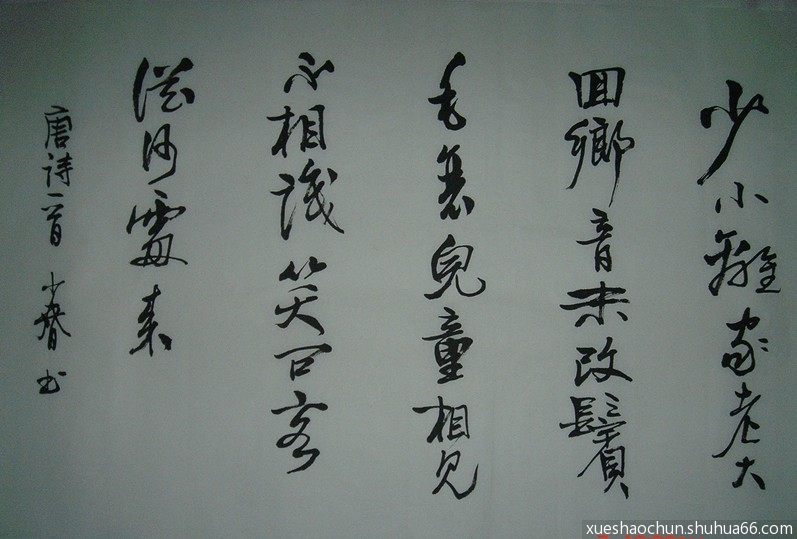 少小離家老大
回鄉音未改鬢
毛衰兒童相見
不相識笑问客
從何處来
唐詩一首 少春书
xueshaochun.shuhua66.com